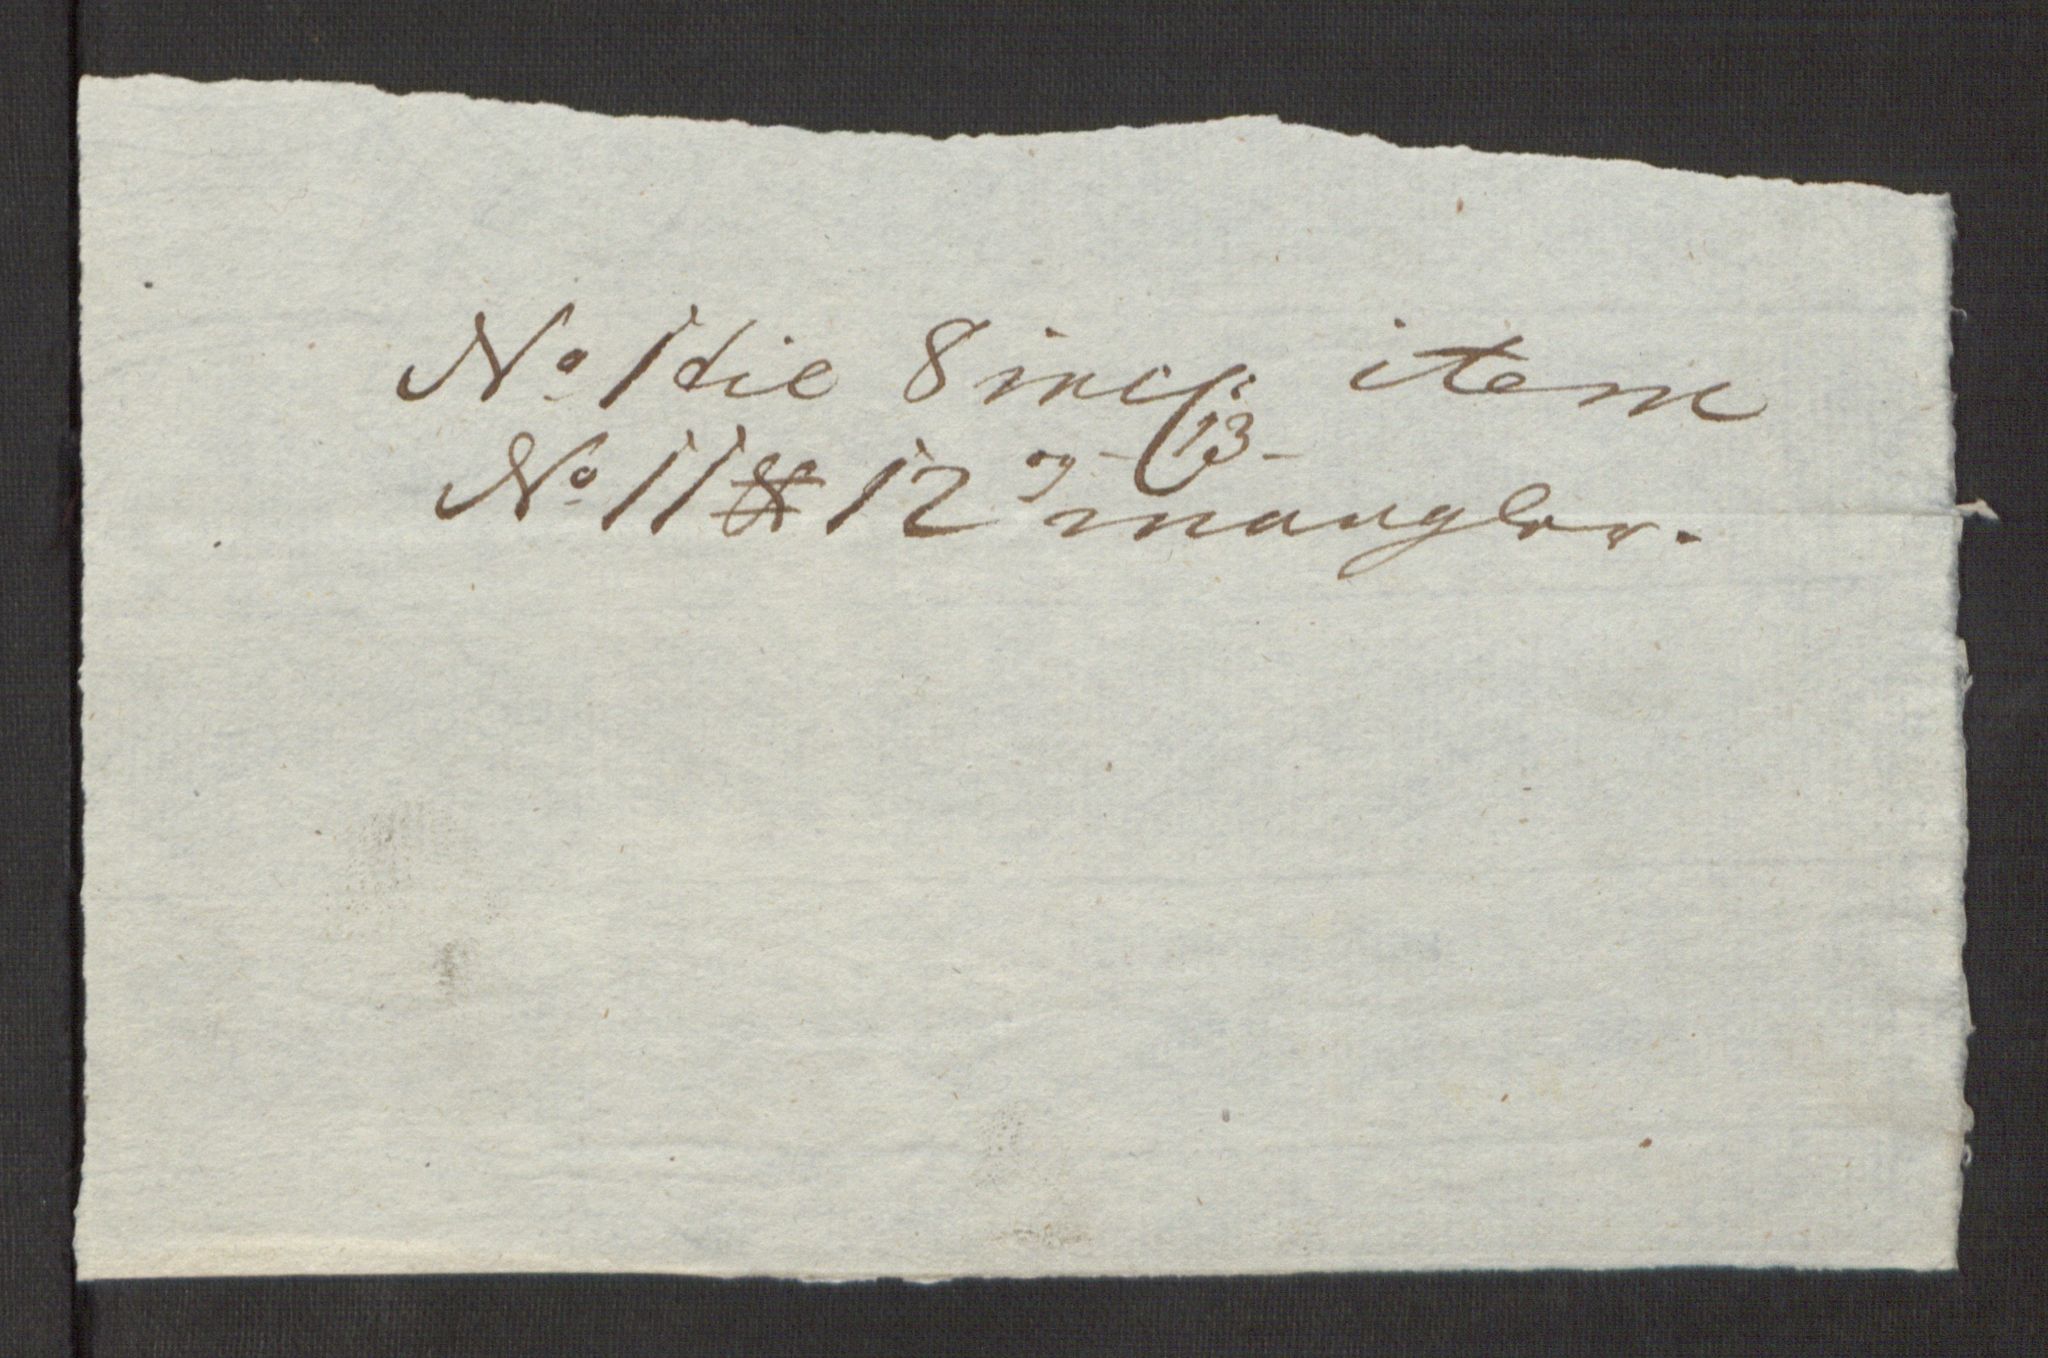 No 1 til 8 incl: item
No 11 & 12 og - 13 - mangler.